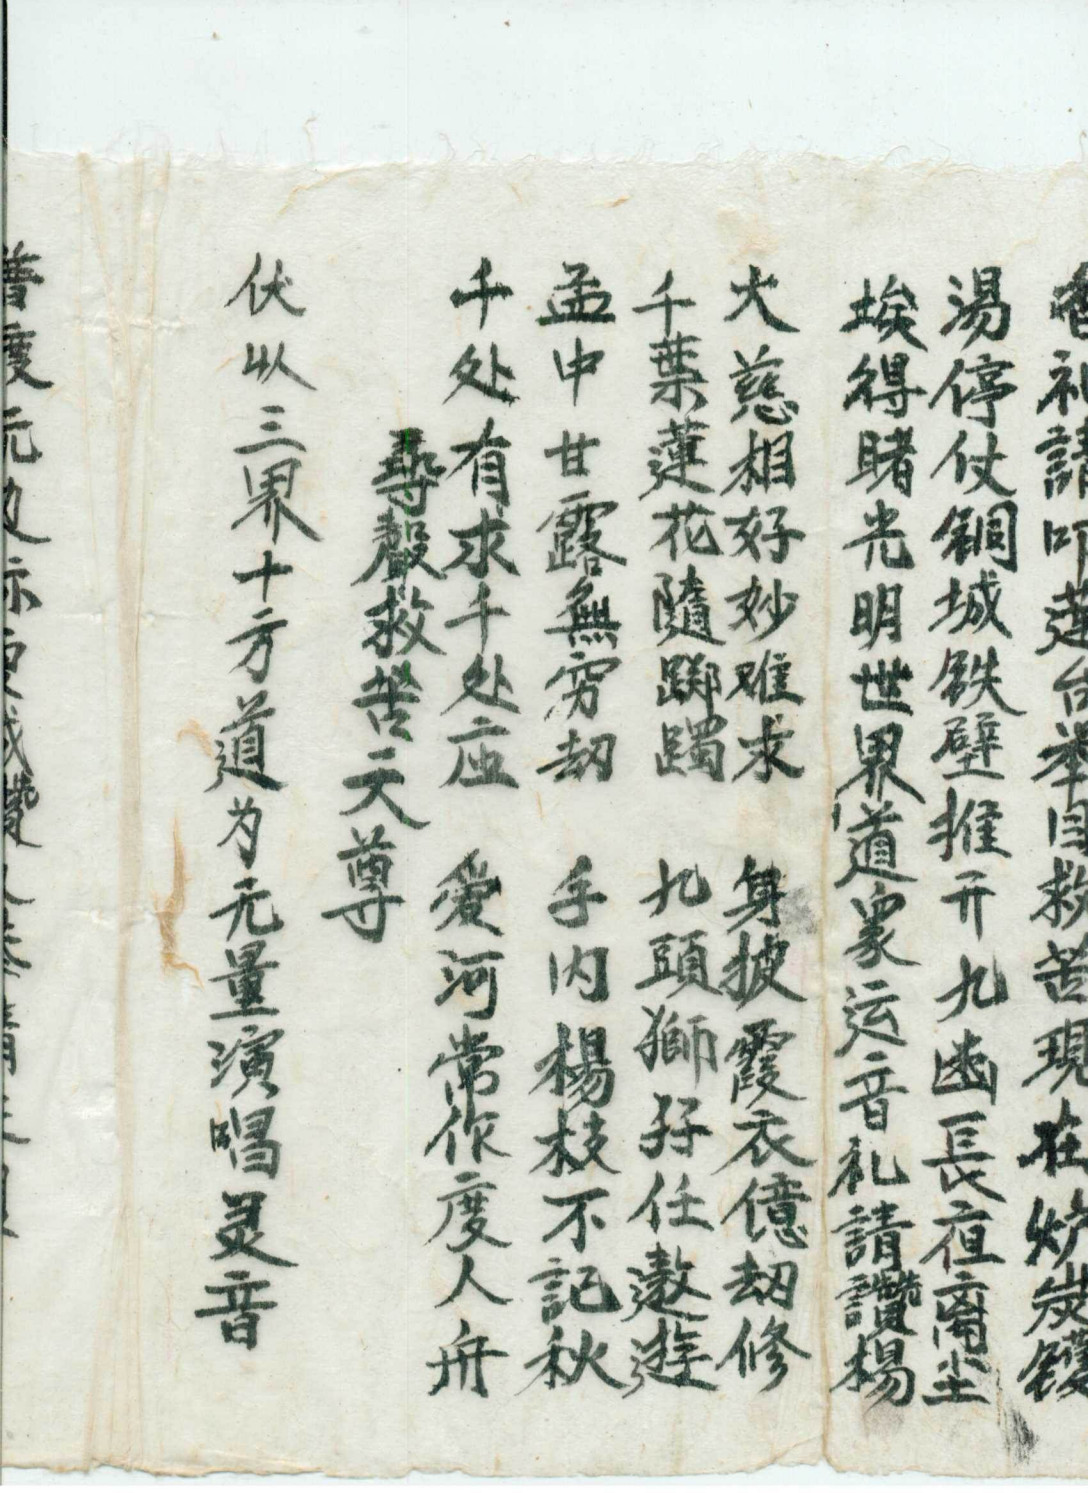 礼請叩蓮台举目救苦現在炉炭鑊
湯停仗銅城铁壁推开九幽長夜离尘
埃得睹光明世界道象运音礼請讚楊
大慈相好妙难求 身披霞衣億劫修
千葉蓮花隨踯躅 九頭獅孖任遨遊
孟中甘露無穷劫 手内楊枝不記秋
千处有求千处应 爱河常作度人舟
尋聲救苦天尊
伏以三界十方道为元量演唱灵音
普度元边